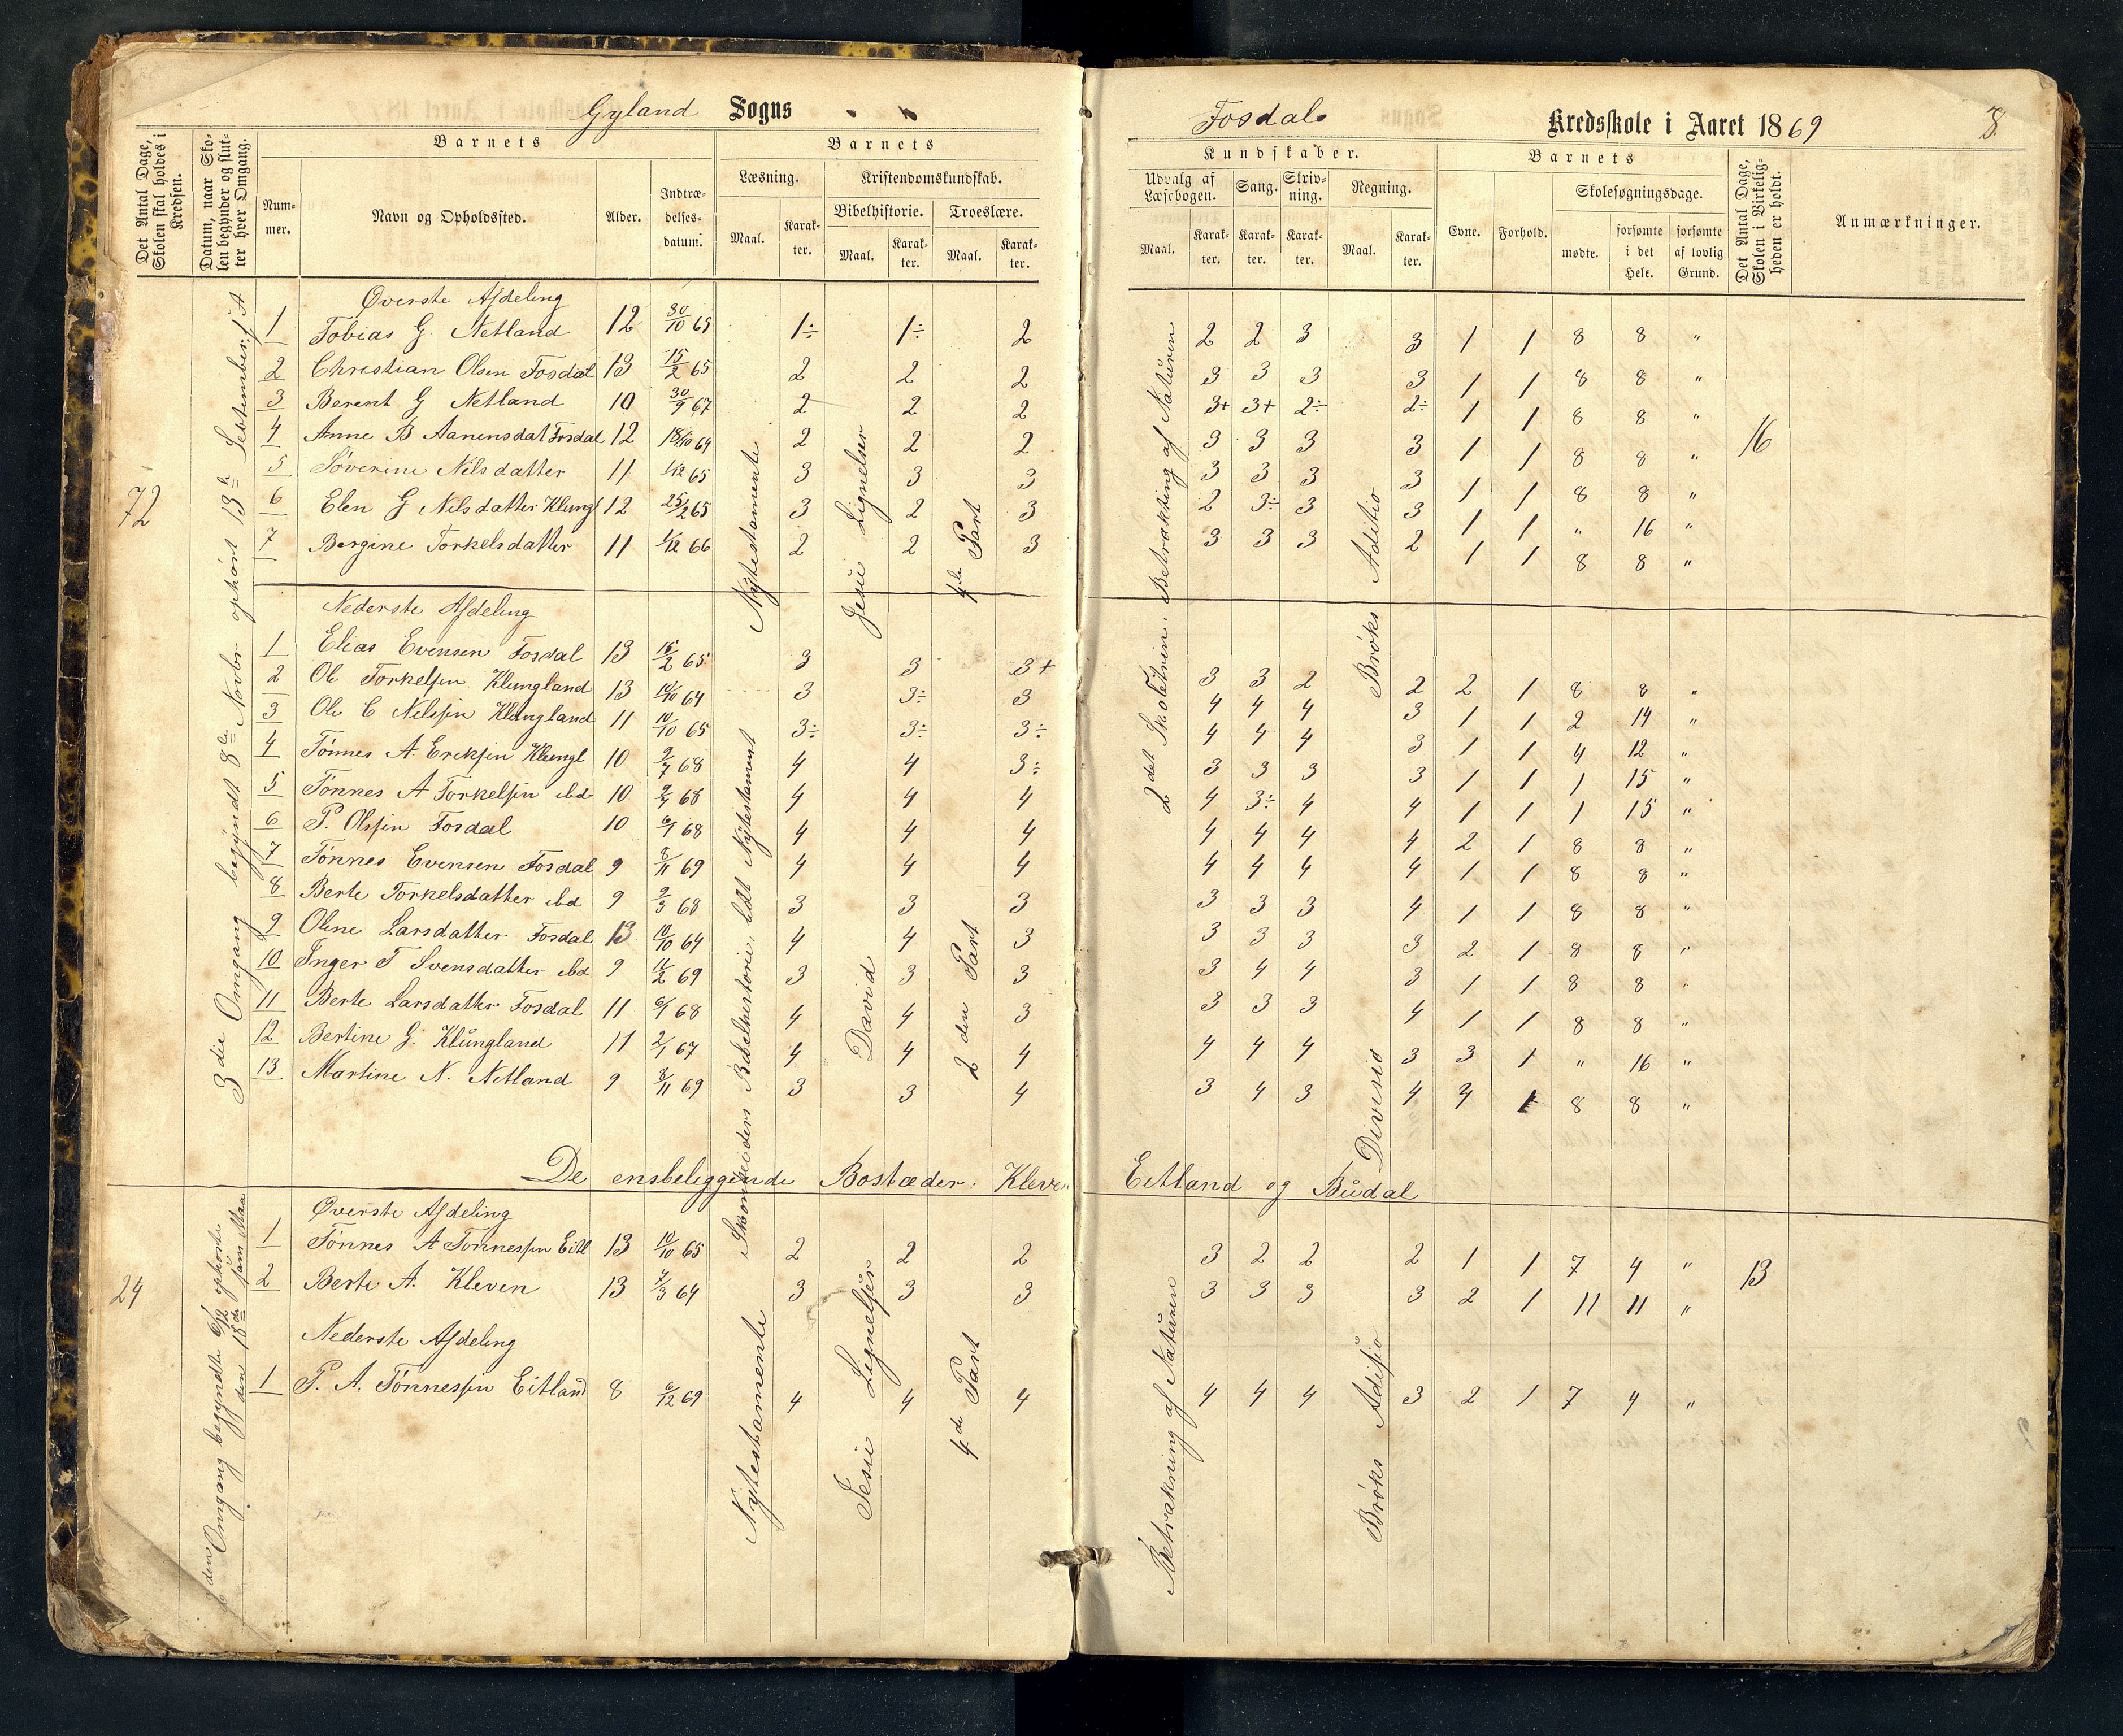 Gyland Sogns
Fosdals Kredsskole i Aaret 1869
8
Det Antal Dage, Skolen skal holdes i Kredsen.
Datum, naar Skolen begynder og slutter hver Omgang.
Barnets
Nummer.
Navn og Opholdssted.
Alder.
Indtrædelsesdatum.
Barnets
Læsning.
Maal.
Karakter.
Kristendomskundskab.
Bibelhistorie.
Maal.
Karakter.
Troeslære.
Maal.
Karakter.
Kundskaber.
Udvalg af Læsebogen.
Maal.
Karakter.
Sang.
Karakter.
Skrivning.
Karakter.
Regning.
Maal.
Karakter.
Barnets
Evne.
Forhold.
Skolesøgningsdage.
mødte.
forsømte i det Hele.
forsømte af lovlig Grund.
Det Antal Dage, Skolen i Virkeligheden er holdt.
Anmærkninger.
72
3die Omgang begyndt 8de Novbr ophørt 13de
Øverste Afdeling
1 Tobias G Netland 12 30/10 65 1÷ 1÷ 2 2 2 3 3 1 1 8 8 "
2 Christian Olsen Fosdal 13 15/2 65 2 2 2 3 3 3 3 1 1 8 8 "
3 Berent G Netland 10 30/9 67 2 2 2 3+ 3+ 2÷ 2÷ 1 1 8 8 "
4 Anne B Aanensdat Fosdal 12 18/10 64 2 2 2 3 3 3 3 1 1 8 8 "
5 Søverine Nilsdatter 11 1/12 65 3 3 3 3 3 3 3 1 1 8 8 "
6 Elen G Nilsdatter Klungl 12 25/2 65 3 2 3 2 3÷ 3 3 1 1 " 16 "
7 Bergine Torkelsdatter 11 1/12 66 2 2 3 3 3 3 2 1 1 8 8 "
Nytestamente
Jesu Lignelser
4de Part
2det Skoletrin. Betrakting af Naturen
Brøks Aditio
16
Nederste Afdeling
1 Elias Evensen Fosdal 13 15/2 65 3 3 3+ 3 3 2 2 2 1 8 8 "
2 Ole Torkelsen Klungland 13 10/10 64 3 3÷ 3 4 4 4 3 1 1 2 14 "
3 Ole C Nilssen Klungland 11 10/10 65 3÷ 3÷ 3÷ 4 4 4 3 1 1 4 12 "
4 Tønnes A Eriksen Klungl 10 9/7 68 4 4 3÷ 3 3 3 3 1 1 1 15 "
5 Tønnes A Torkelsen ibd 10 9/7 68 4 4 4 4 3÷ 4 4 1 1 1 15 "
6 P. Olssen Fosdal 10 6/1 68 4 4 4 4 4 4 4 2 1 8 8 "
7 Tønnes Evensen Fosdal 9 8/11 69 4 4 4 4 4 4 4 1 1 8 8 "
8 Berte Torkelsdatter ibd 9 9/3 68 3 3 3 3 3 3 4 1 1 8 8 "
9 Oline Larsdatter Fosdal 13 10/10 64 4 4 3 3 3 3 3 2 1 8 8 "
10 Inger T Svensdatter ibd 9 11/2 69 3 3 3 3 4 4 3 1 1 8 8 "
11 Berte Larsdatter Fosdal 11 6/1 68 4 4 3 3 3 3 4 1 1 8 8 "
12 Bertine G. Klungland 11 2/1 67 4 4 4 4 4 4 3 3 1 " 16 "
13 Martine N. Netland 9 8/11 69 3 3 4 3 4 3 4 3 1 8 8 "
Bibelhistorie, lidt Nytestament
David
2den Part
Divisio
De ensbeliggende Bostæder: Kleven Eitland og Budal
24
Omgang begyndte 6/12 ophørte den 18de
Øverste Afdeling
1 Tønnes A Tønnessen Eitl 13 10/10 65 2 2 2 3 2 2 2 1 1 7 4 "
2 Berte A. Kleven 13 7/3 64 3 3 3 3 3 3 3 2 1 11 11 "
13
Nederste Afdeling
1 P. A. Tønnessen Eitland 8 6/12 69 4 4 4 4 4 4 3 2 1 7 4 "
Nytestamente
Jesu Lignelser
4de Part
Betrakning af Naturen
Brøks Adisjo